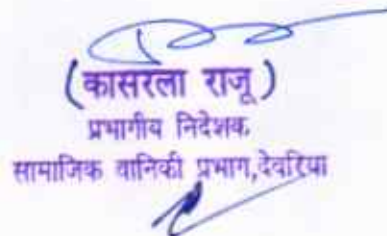 (कासरला राजू)
प्रभागीय निदेशक
सामाजिक वानिकी प्रभाग,देवरिया